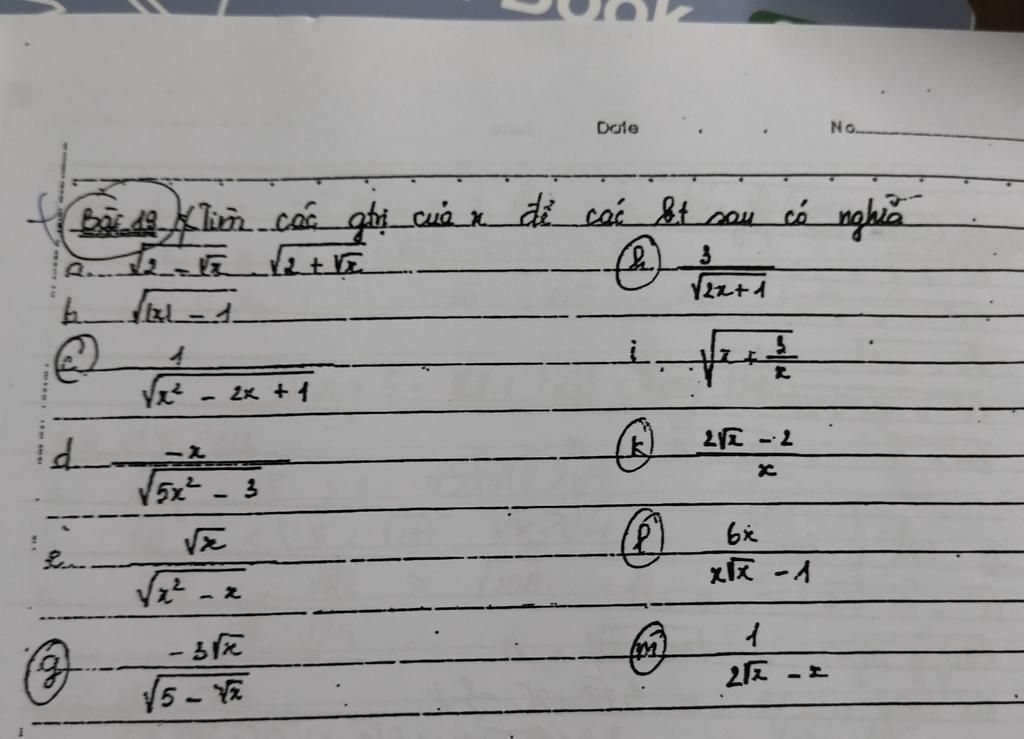 Book
Date . . No
Bài 19 Tìm các gtrị của x để các bt sau có nghĩa
a. √(2 - √x) . √(2 + √x)
h 3/√(2x + 1)
b. √(|x| - 1)
c 1/√(x² - 2x + 1)
i. √(x + 3/x)
d -x/√(5x² - 3)
k (2√x - 2)/x
e. √x/√(x² - x)
l 6x/(x√x - 1)
g -3√x/√(5 - √x)
m 1/(2√x - x)